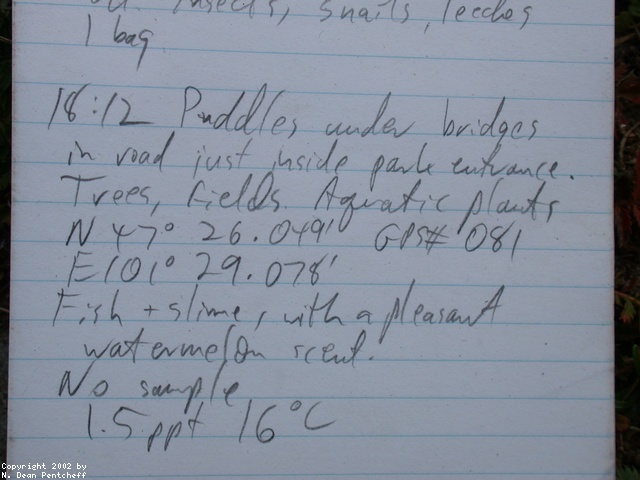 or. insects, snails, leeches
1 bag
18:12 Puddles under bridges
in road just inside park entrance.
Trees, fields. Aquatic plants
N 47° 26.049' GPS# 081
E 101° 29.078'
Fish + slime, with a pleasant
watermelon scent.
No sample
1.5 ppt 16°C
Copyright 2002 by
N. Dean Pentcheff